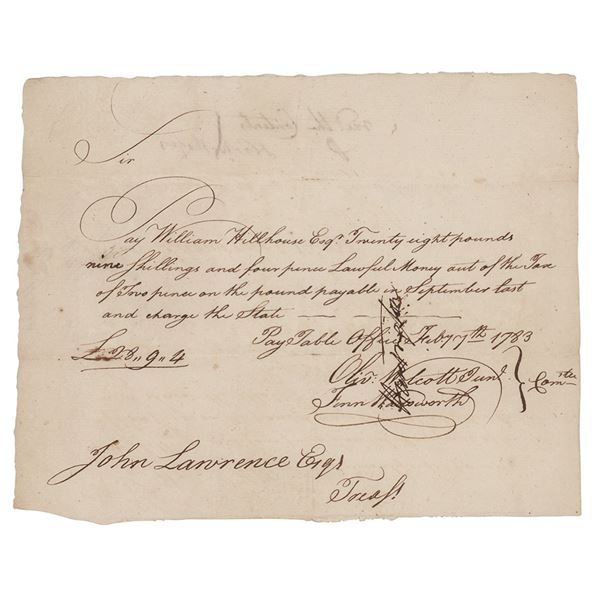 Sir
Pay William Hillhouse Esqr. Twenty eight pounds
nine Shillings and four pence Lawful Money out of the Tax
of Two pence on the pound payable in September last
and charge the State
Pay Table Office Feby 7th 1783
£28,,9,,4
Olivr. Wolcott Junr.
Fenn Wadsworth
Comtee
John Lawrence Esqr
Treasr